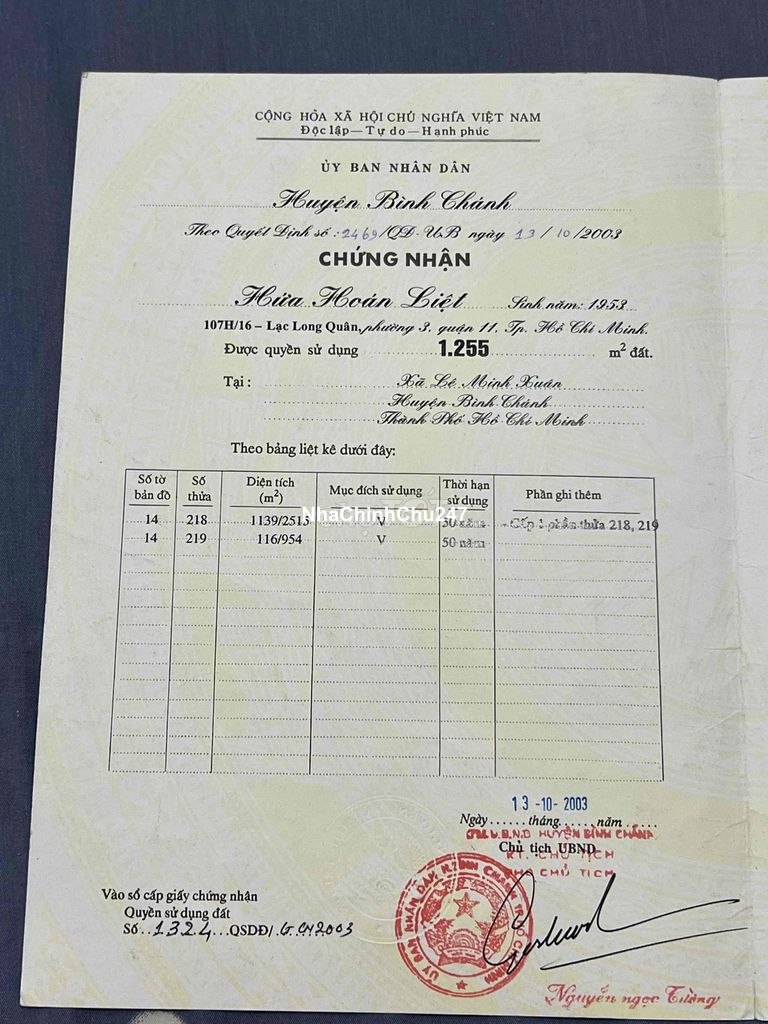 CỘNG HÒA XÃ HỘI CHỦ NGHĨA VIỆT NAM
Độc lập — Tự do — Hạnh phúc
ỦY BAN NHÂN DÂN
Huyện Bình Chánh
Theo Quyết Định số : 2469/QĐ-UB ngày 13/10/2003
CHỨNG NHẬN
Hứa Hoán Liệt Sinh năm: 1953
107H/16 – Lạc Long Quân, phường 3, quận 11, Tp. Hồ Chí Minh.
Được quyền sử dụng 1.255 m² đất.
Tại : Xã Lê Minh Xuân
Huyện Bình Chánh
Thành Phố Hồ Chí Minh
Theo bảng liệt kê dưới đây:
Số tờ bản đồ Số thửa Diện tích (m²) Mục đích sử dụng Thời hạn sử dụng Phần ghi thêm
14 218 1139/2513 V 50 năm - Cấp 1 phần thửa 218, 219
NhaChinhChu247
14 219 116/954 V 50 năm
13 -10- 2003
Ngày......tháng......năm......
TM.U.B.N.D HUYỆN BÌNH CHÁNH
Chủ tịch UBND
KT. CHỦ TỊCH
PHÓ CHỦ TỊCH
Vào sổ cấp giấy chứng nhận
Quyền sử dụng đất
Số..1324...QSDĐ/
Nguyễn ngọc Tường